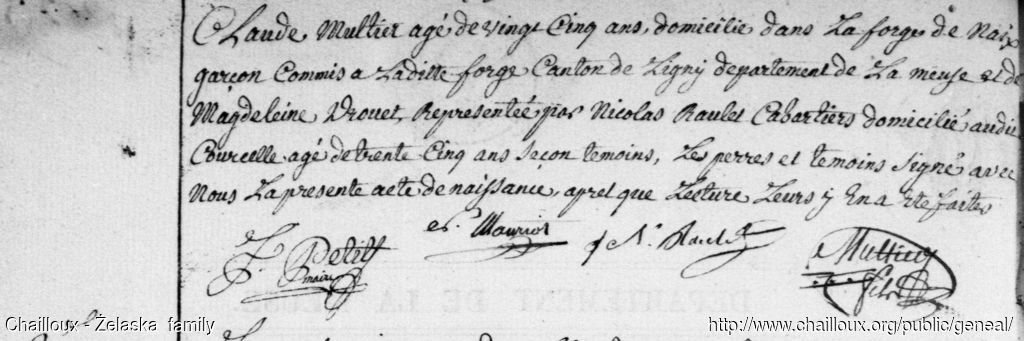 Claude Multier agé de vingt Cinq ans, domicilie dans La forge de Naix
garçon Commis a Laditte forge Canton de Ligny departement de La meuse et de
Magdeleine Drouet, Representée par Nicolas Raulet Cabartiers domicilié audit
Courcelle agé de trente Cinq ans Seçon temoins, Les perres et temoins Signé avec
Nous La presente acte de naissance, apret que Lecture Leurs y En a ete faites
F. Petitt Mauriot N. Raulet Multier
maire fils
DEPARTEMENT DE LA MEUSE
Chailloux - Żelaska family http://www.chailloux.org/public/geneal/